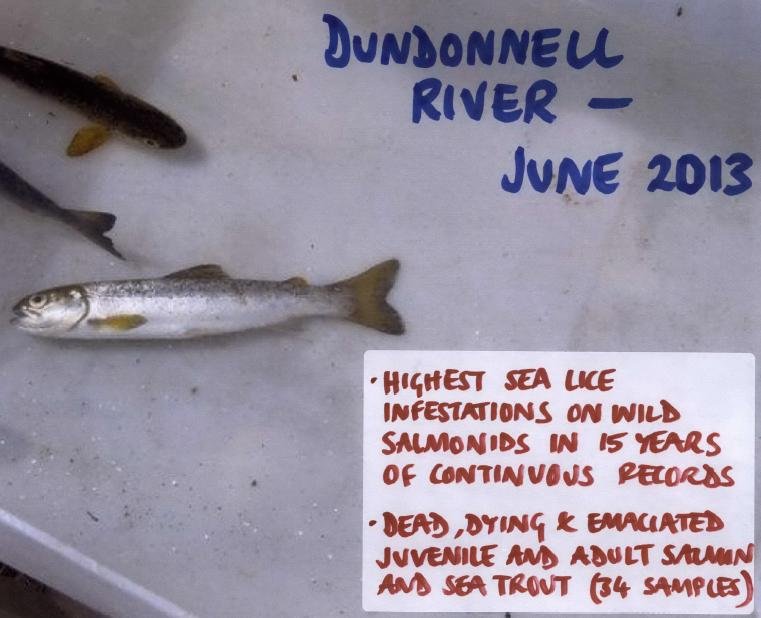 DUNDONNELL
RIVER –
JUNE 2013
• HIGHEST SEA LICE
INFESTATIONS ON WILD
SALMONIDS IN 15 YEARS
OF CONTINUOUS RECORDS
• DEAD, DYING & EMACIATED
JUVENILE AND ADULT SALMON
AND SEA TROUT (34 SAMPLES)